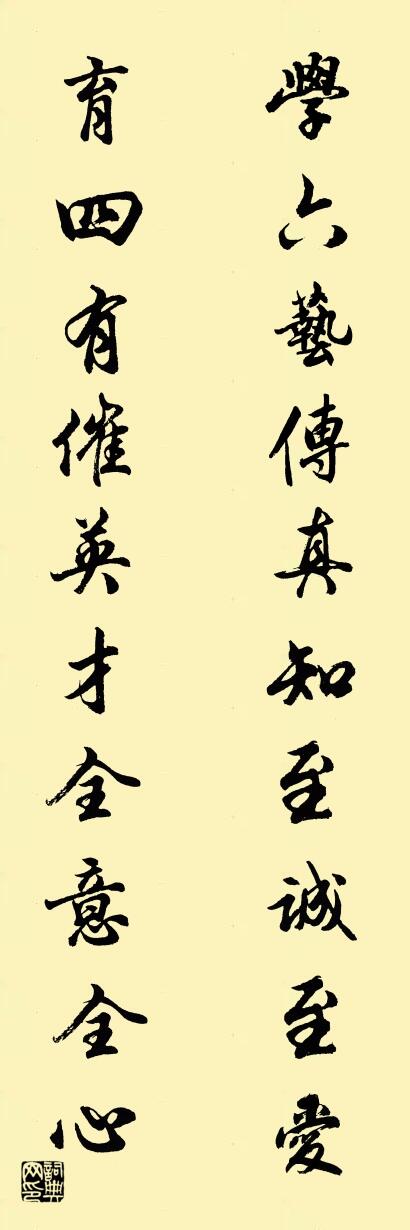 學六藝傳真知至誠至愛
育四有催英才全意全心
詞典网印